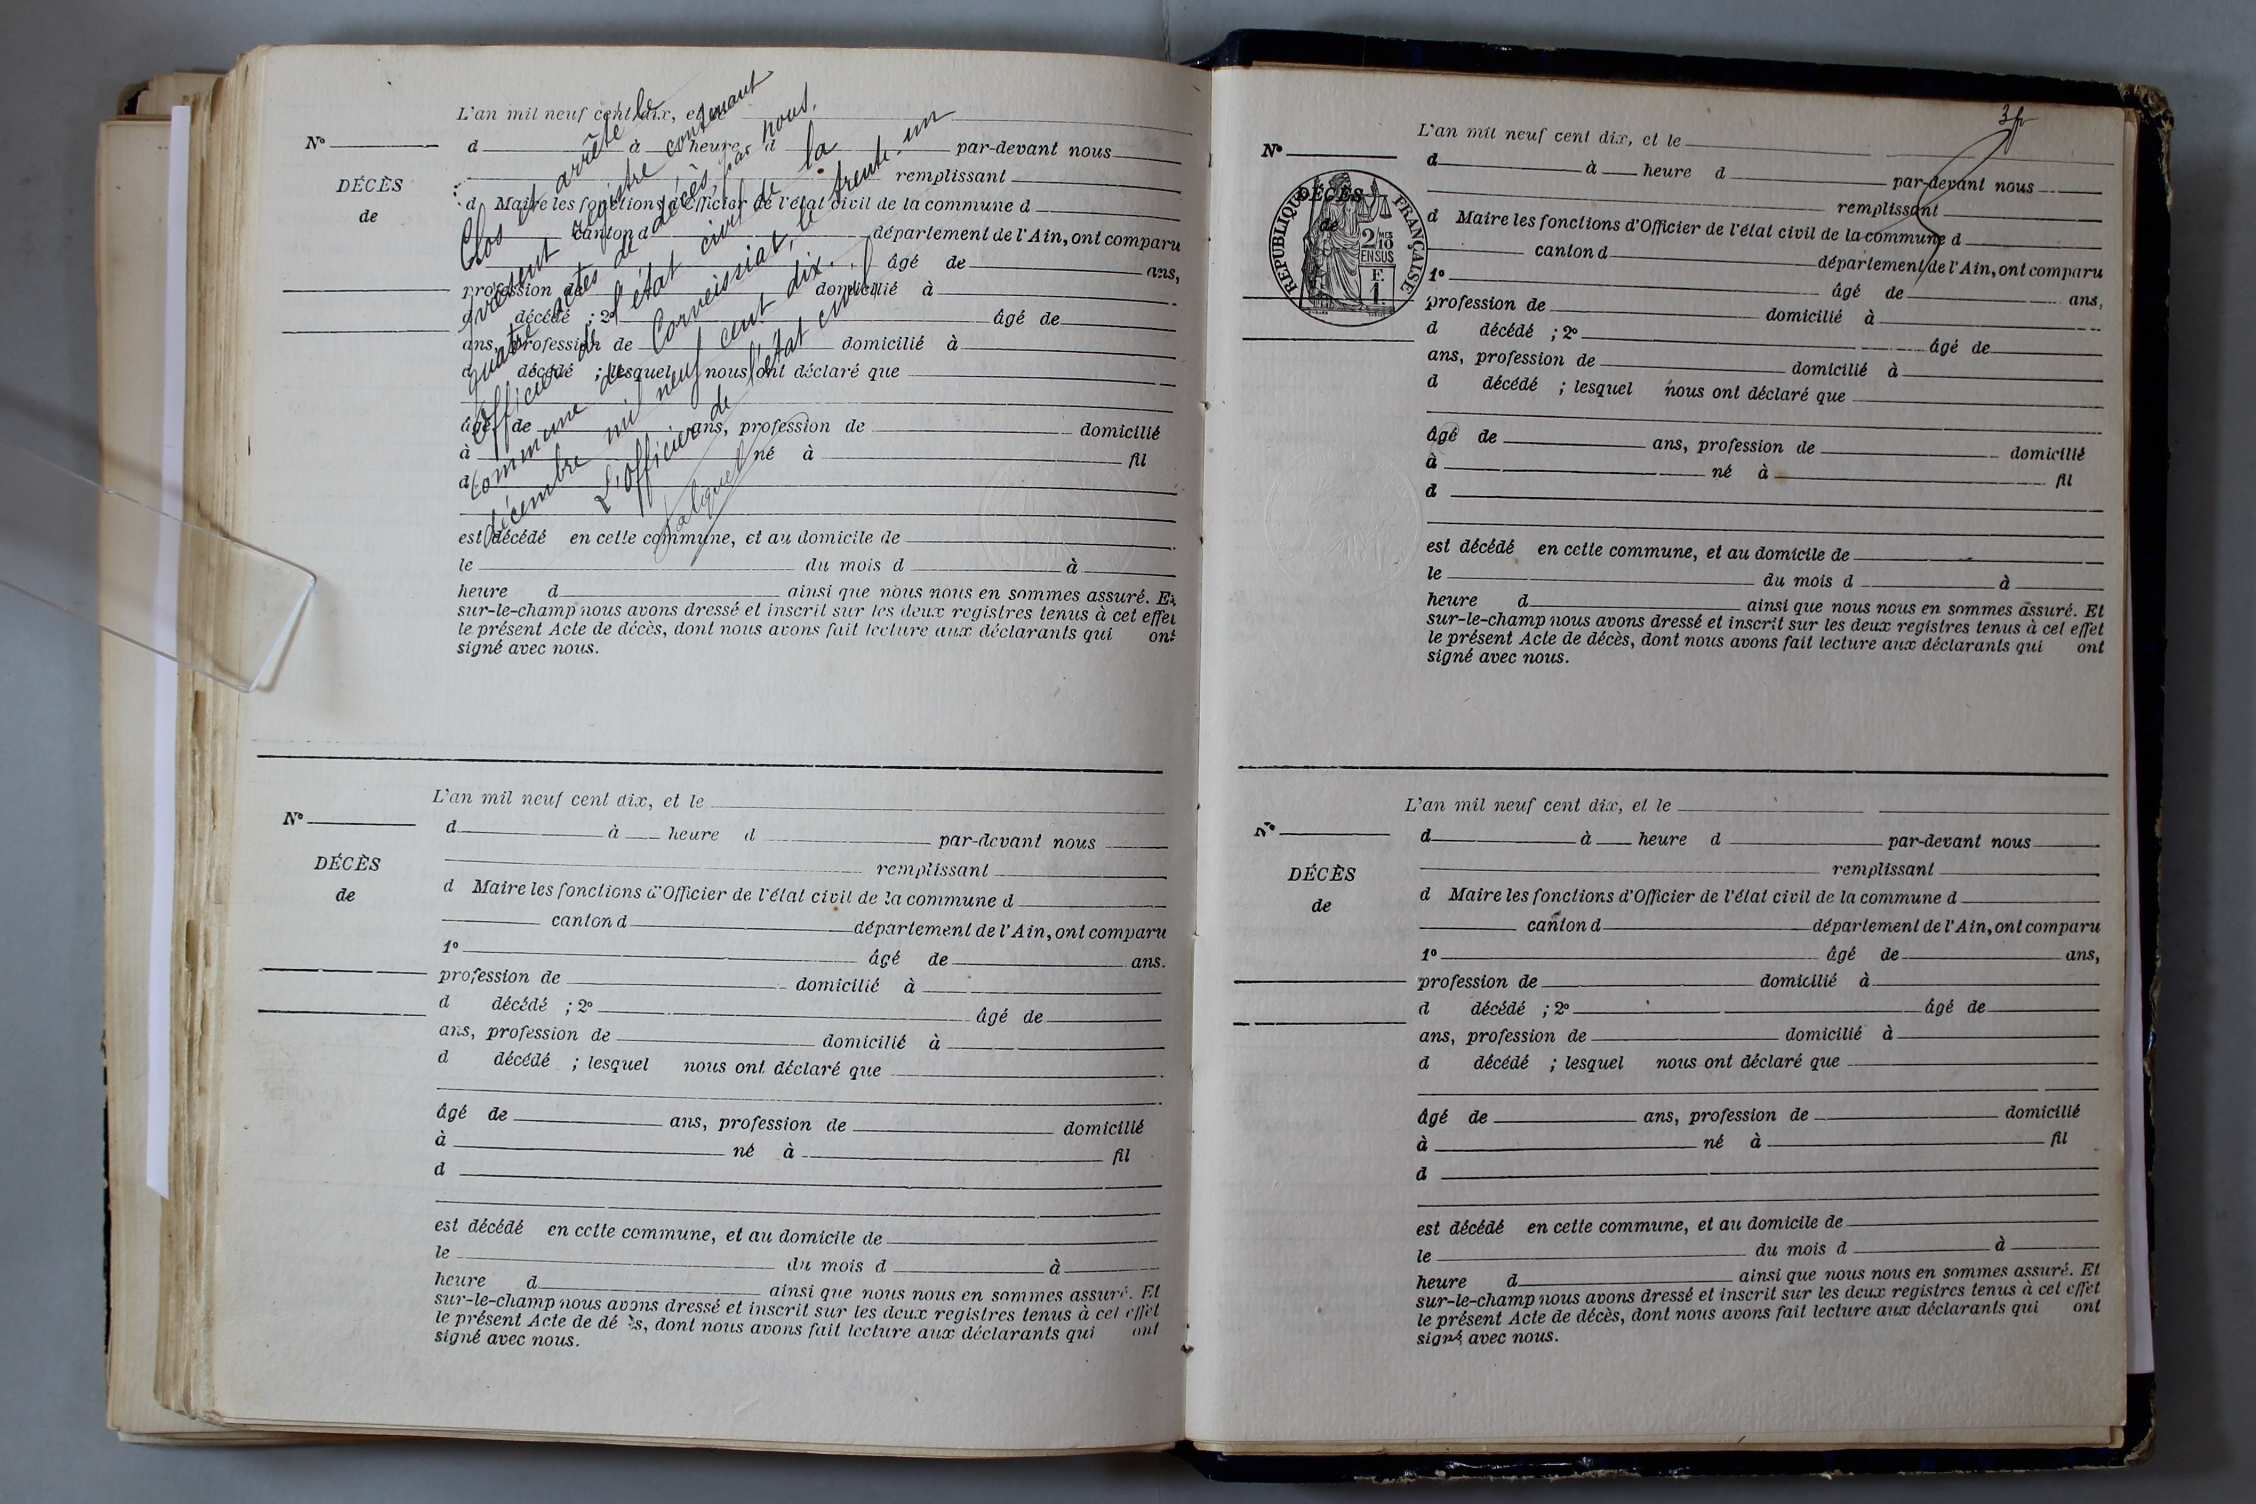 L'an mil neuf cent dix, et le
N° d à heure d par-devant nous
DÉCÈS remplissant
de d Maire les fonctions d'Officier de l'état civil de la commune d
canton d département de l'Ain, ont comparu
âgé de ans,
profession de domicilié à
d décédé ; 2° âgé de
ans, profession de domicilié à
d décédé ; lesquel nous ont déclaré que
âgé de ans, profession de domicilié
à né à fil
d
est décédé en cette commune, et au domicile de
le du mois d à
heure d ainsi que nous nous en sommes assuré. Et
sur-le-champ nous avons dressé et inscrit sur les deux registres tenus à cet effet
le présent Acte de décès, dont nous avons fait lecture aux déclarants qui ont
signé avec nous.
Clos et arrêté le
présent registre contenant
quatre actes de décès, par nous,
Officier de l'état civil de la
commune de Corveissiat, le trente-un
décembre mil neuf cent dix.
L'Officier de l'état civil
L'an mil neuf cent dix, et le
N° d à heure d par-devant nous
DÉCÈS remplissant
de d Maire les fonctions d'Officier de l'état civil de la commune d
canton d département de l'Ain, ont comparu
1° âgé de ans.
profession de domicilié à
d décédé ; 2° âgé de
ans, profession de domicilié à
d décédé ; lesquel nous ont déclaré que
âgé de ans, profession de domicilié
à né à fil
d
est décédé en cette commune, et au domicile de
le du mois d à
heure d ainsi que nous nous en sommes assuré. Et
sur-le-champ nous avons dressé et inscrit sur les deux registres tenus à cet effet
le présent Acte de décès, dont nous avons fait lecture aux déclarants qui ont
signé avec nous.
L'an mil neuf cent dix, et le
N° d à heure d par-devant nous
DÉCÈS remplissant
de d Maire les fonctions d'Officier de l'état civil de la commune d
canton d département de l'Ain, ont comparu
RÉPUBLIQUE FRANÇAISE
2/10 MES
EN SUS
F.
1.
1° âgé de ans,
profession de domicilié à
d décédé ; 2° âgé de
ans, profession de domicilié à
d décédé ; lesquel nous ont déclaré que
âgé de ans, profession de domicilié
à né à fil
d
est décédé en cette commune, et au domicile de
le du mois d à
heure d ainsi que nous nous en sommes assuré. Et
sur-le-champ nous avons dressé et inscrit sur les deux registres tenus à cet effet
le présent Acte de décès, dont nous avons fait lecture aux déclarants qui ont
signé avec nous.
L'an mil neuf cent dix, et le
N° d à heure d par-devant nous
DÉCÈS remplissant
de d Maire les fonctions d'Officier de l'état civil de la commune d
canton d département de l'Ain, ont comparu
1° âgé de ans,
profession de domicilié à
d décédé ; 2° âgé de
ans, profession de domicilié à
d décédé ; lesquel nous ont déclaré que
âgé de ans, profession de domicilié
à né à fil
d
est décédé en cette commune, et au domicile de
le du mois d à
heure d ainsi que nous nous en sommes assuré. Et
sur-le-champ nous avons dressé et inscrit sur les deux registres tenus à cet effet
le présent Acte de décès, dont nous avons fait lecture aux déclarants qui ont
signé avec nous.